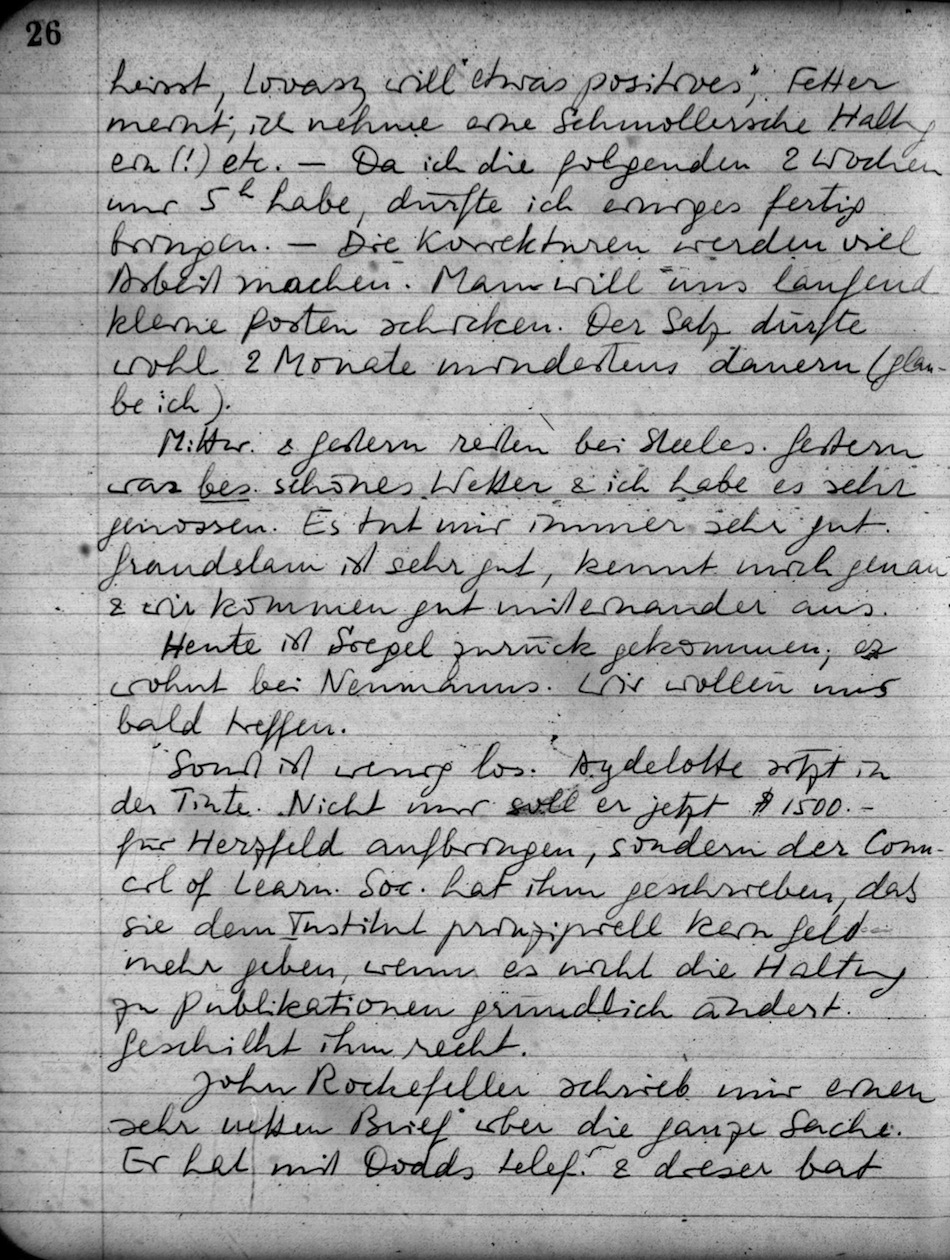 26
heisst, Lovasz will "etwas positives", Fetter
meint, ich nehme eine Schmollersche Haltg
ein (!) etc. — Da ich die folgenden 2 Wochen
nur 5h habe, dürfte ich einiges fertig
bringen. — Die Korrekturen werden viel
Arbeit machen. Man will uns laufend
kleine Posten schicken. Der Satz dürfte
wohl 2 Monate mindestens dauern (glau-
be ich).
Mittw. & gestern reiten bei Steeles. Gestern
war bes. schönes Wetter & ich habe es sehr
genossen. Es tut mir immer sehr gut.
Grandslam ist sehr gut, kennt mich genau
& wir kommen gut miteinander aus.
Heute ist Siegel zurück gekommen; er
wohnt bei Neumanns. Wir wollen uns
bald treffen.
Sonst ist wenig los. Aydelotte sitzt in
der Tinte. Nicht nur soll er jetzt $ 1500.-
für Herzfeld aufbringen, sondern der Coun-
cil of Learn. Soc. hat ihm geschrieben, das
sie dem Institut prinzipiell kein Geld
mehr geben, wenn es nicht die Haltung
zu Publikationen gründlich ändert.
Geschieht ihm recht.
John Rockefeller schrieb mir einen
sehr netten Brief über die ganze Sache.
Er hat mit Dodds telef. & dieser bat